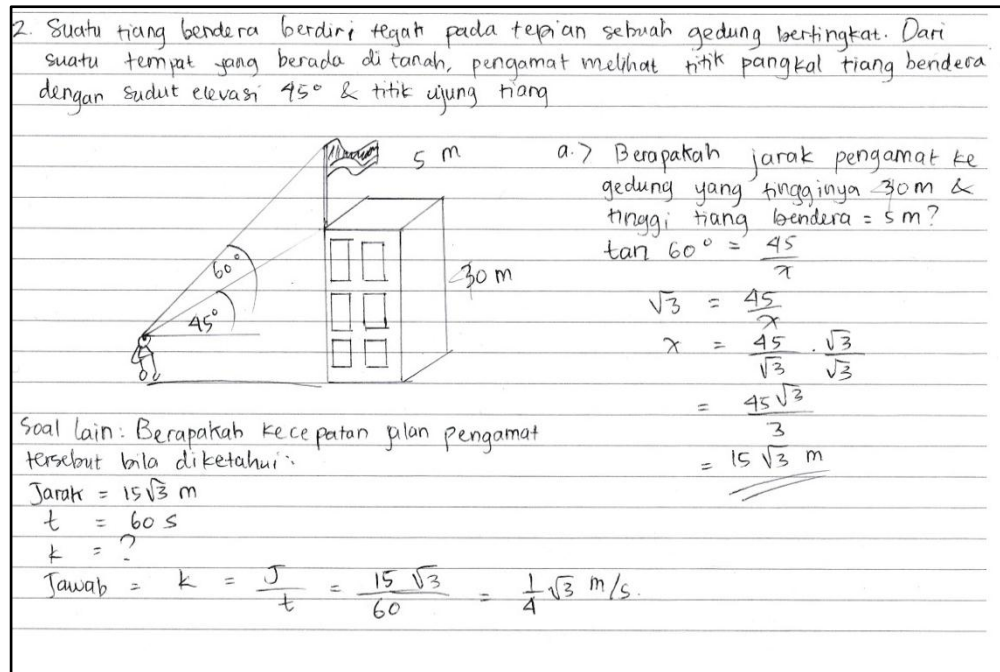 2. Suatu tiang bendera berdiri tegak pada tepian sebuah gedung bertingkat. Dari
suatu tempat yang berada di tanah, pengamat melihat titik pangkal tiang bendera
dengan sudut elevasi 45° & titik ujung tiang
5 m
60°
45°
30 m
a.> Berapakah jarak pengamat ke
gedung yang tingginya 30 m &
tinggi tiang bendera = 5 m?
tan 60° = 45/x
√3 = 45/x
x = 45/√3 . √3/√3
= 45√3/3
= 15 √3 m
Soal lain: Berapakah kecepatan jalan pengamat
tersebut bila diketahui:
Jarak = 15√3 m
t = 60 s
k = ?
Jawab = k = J/t = 15 √3/60 = 1/4 √3 m/s.